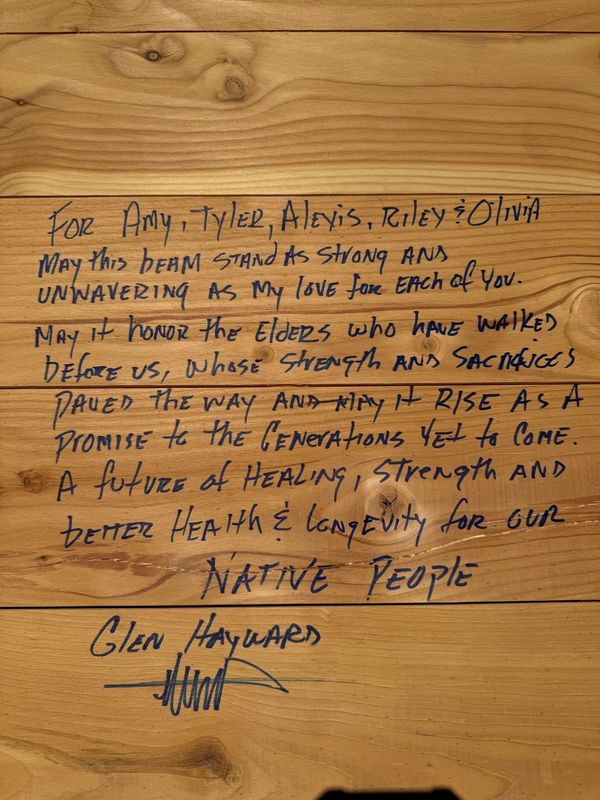 For Amy, Tyler, Alexis, Riley & Olivia
May this beam stand as strong and
unwavering as my love for each of you.
May it honor the Elders who have walked
before us, whose strength and sacrifices
paved the way and may it rise as a
promise to the Generations yet to come.
A future of Healing, strength and
better Health & longevity for our
Native People
Glen Hayward